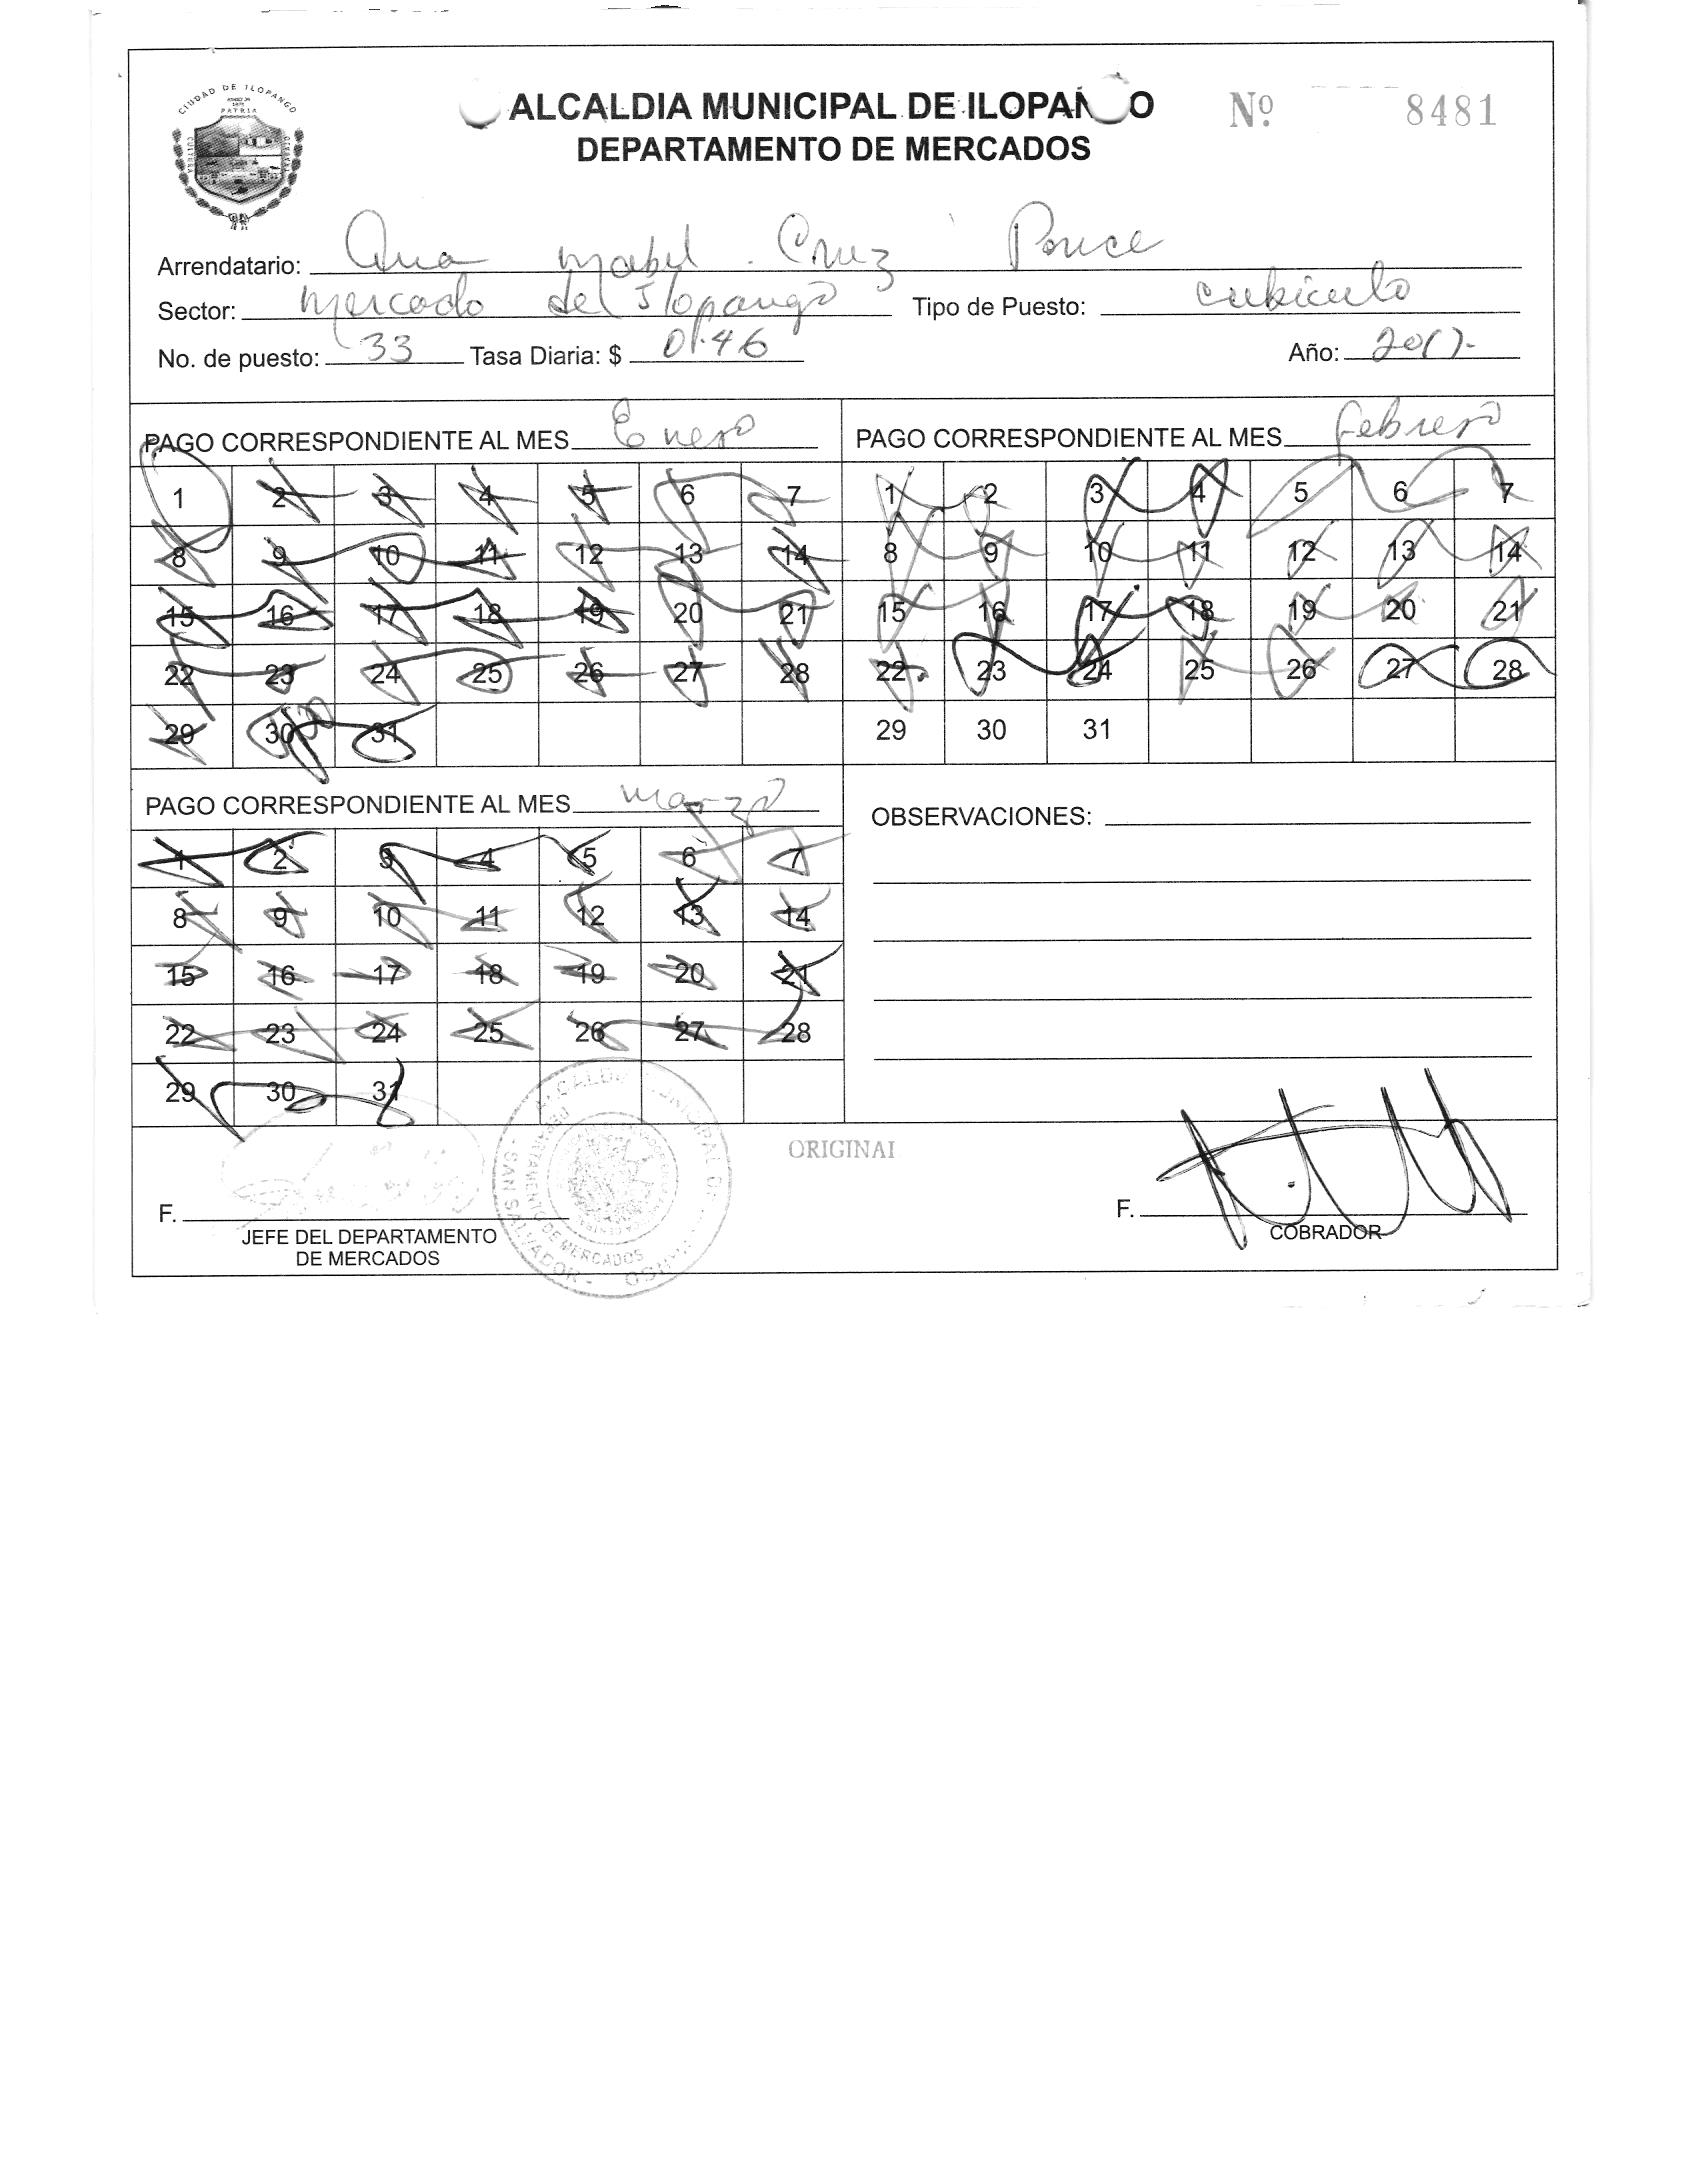 CIUDAD DE ILOPANGO
PATRIA
ALCALDIA MUNICIPAL DE ILOPANGO
DEPARTAMENTO DE MERCADOS
Nº 8481
Arrendatario: Ana Mabel Cruz Ponce
Sector: Mercado de Ilopango Tipo de Puesto: cubiculo
No. de puesto: 33 Tasa Diaria: $ 0.46 Año: 2017-
PAGO CORRESPONDIENTE AL MES Enero
1 2 3 4 5 6 7
8 9 10 11 12 13 14
15 16 17 18 19 20 21
22 23 24 25 26 27 28
29 30 31
PAGO CORRESPONDIENTE AL MES Febrero
1 2 3 4 5 6 7
8 9 10 11 12 13 14
15 16 17 18 19 20 21
22 23 24 25 26 27 28
29 30 31
PAGO CORRESPONDIENTE AL MES Marzo
1 2 3 4 5 6 7
8 9 10 11 12 13 14
15 16 17 18 19 20 21
22 23 24 25 26 27 28
29 30 31
OBSERVACIONES:
ORIGINAL
F.
JEFE DEL DEPARTAMENTO
DE MERCADOS
DEPARTAMENTO DE MERCADOS
SAN SALVADOR
F.
COBRADOR